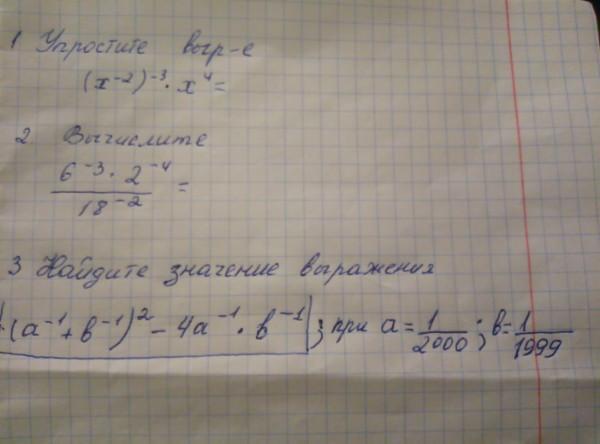 1 Упростите выр-е
(x⁻²)⁻³ · x⁴ =
2. Вычислите
6⁻³ · 2⁻⁴ / 18⁻² =
3 Найдите значение выражения
(a⁻¹ + в⁻¹)² - 4a⁻¹ · в⁻¹ ; при a = 1/2000 ; в = 1/1999